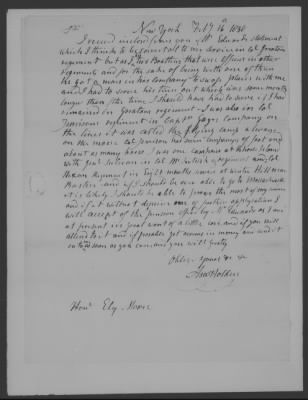 New York Feby 16 1838
Sir
I received inclosed from you Mr Edwards statement
which I think to be correct as to my service in Col Greatons
regiment but as I was boasting that were officers in other
regiments and for the sake of being with one of them
he got a man in his company to swap places with me
and I had to serve his turn out which was some months
longer than the time I should have had to serve if I had
remained in Greatons regiment. I was also in Col
Jamisons regiment in Captn Gays company on
the lines it was called the flying camp always
on the move Col Jamison had nine companys of foot and
about as many horse I was one campane at Rhode Island
with Genl Sulivan in Col
regiment and Col
regiment in Eight months
and if I should be ever able to go to Massachusetts
it is likely I should be able to prove the most of my service
and if it without depriving me of further application I
will accept of the pension offer by Mr Edwards as I am
at present in great want of a little and if you will
attend to it and if possible get money in money and send it
on to me soon as you can and you will greatly
Oblige yours &c &c
Holden
Honl Ely Moore